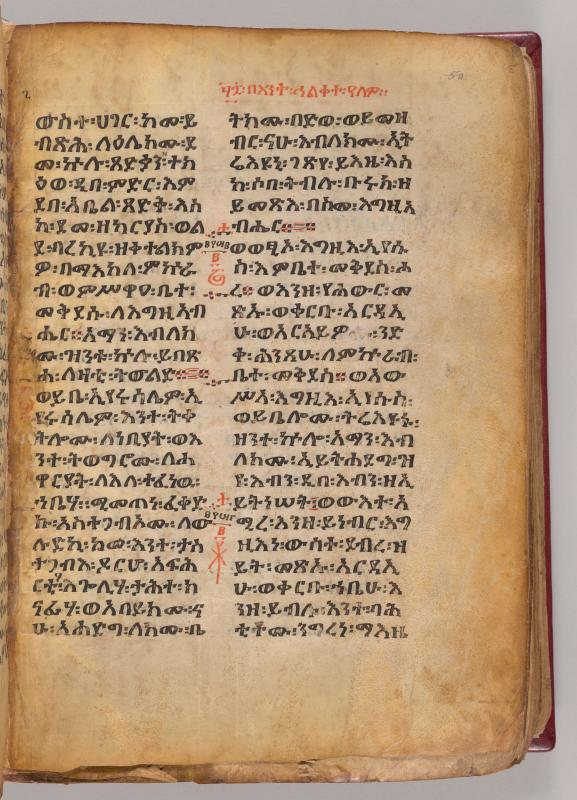 በእንተ፡ኅልቀተ፡ዓለም።
ውስተ፡ሀገር፡ከመ፡ይ
ብጽሕ፡ላዕሌክሙ፡ደ
መ፡ኵሉ፡ጻድቃን፡ተክ
ዕወ፡ዲበ፡ምድር፡እም
ደበ፡አቤል፡ጻድቅ፡እስ
ከ፡ደመ፡ዘካርያስ፡ወል
ደ፡ባራኪዩ፡ዘቀተልክም
ዎ፡በማእከለ፡ምኵራ
ብ፡ወምሥዋዐ፡ቤተ፡
መቅደሱ፡ለእግዚአብ
ሔር።አማን፡እብለክ
ሙ፡ዝንቱ፡ኵሉ፡ይበጽ
ሕ፡ለዛቲ፡ትውልድ።
ወይቤ፡ኢየሩሳሌም፡ኢ
የሩሳሌም፡እንተ፡ትቀ
ትሎሙ፡ለነቢያት፡ወእ
ንተ፡ትወግሮሙ፡ለሐ
ዋርያት፡ለእለ፡ተፈነዉ፡
ኀቤሃ፡ሚመጠነ፡ፈቀድ
ኩ፡አስተጋብኦሙ፡ለው
ሉድኪ፡ከመ፡እንተ፡ታስ
ተጋብእ፡ዶርሆ፡አፍሐ
ርቲሃ፡እጐሊሃ፡ታሕተ፡ክ
ነፊሃ፡ወአበይክሙ፡ና
ሁ፡አሐድግ፡ለክሙ፡ቤ
ትክሙ፡በድወ፡ወይመዝ
ብር፡ናሁ፡እብለክሙ፡ኢት
ሬእዩኒ፡ገጽየ፡ይእዜ፡እስ
ከ፡ሶበ፡ትብሉ፡ቡሩክ፡ዘ
ይመጽእ፡በስመ፡እግዚአ
ብሔር።
ወወፂኦ፡እግዚእ፡ኢየሱ
ስ፡እምቤተ፡መቅደስ፡ሖ
ረ።ወእንዘ፡የሐውር፡መ
ጽኡ፡ወቀርቡ፡አርዳኢ
ሁ፡ወአርአይዎ፡ንድ
ቀ፡ሕንጻሁ፡ለምኵራብ፡
ቤተ፡መቅደስ።ወአው
ሥአ፡እግዚእ፡ኢየሱስ፡
ወይቤሎሙ፡ትሬእዩኑ፡
ዘንተ፡ኵሎ፡አማን፡እብ
ለክሙ፡ኢይትሐደግ፡ዝ
የ፡እብን፡ዲበ፡እብን፡ዘኢ
ይትነሠት።ወውእቱ፡አ
ሚረ፡እንዘ፡ይነብር፡እግ
ዚእነ፡ውስተ፡ደብረ፡ዘ
ይት፡መጽኡ፡አርዳኢ
ሁ፡ወቀርቡ፡ኀቤሁ፡እ
ንዘ፡ይብሉ፡እንተ፡ባሕ
ቲቶሙ፡ንግረነ፡ማእዜ